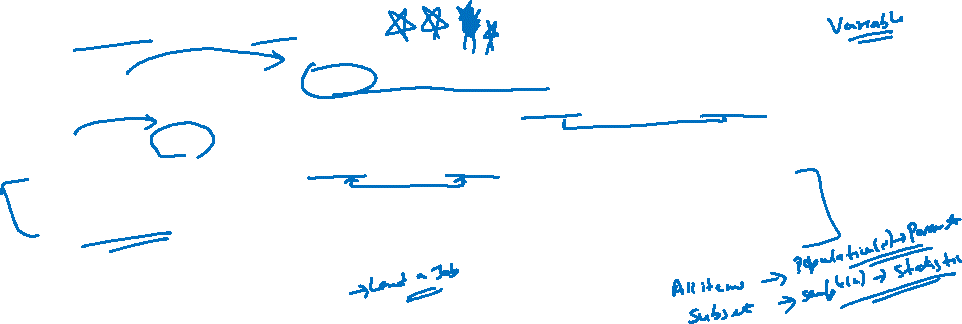 Variable
→ Land a Job
All items → Population(N) → Paramet
Subset → Sample(n) → Statistic